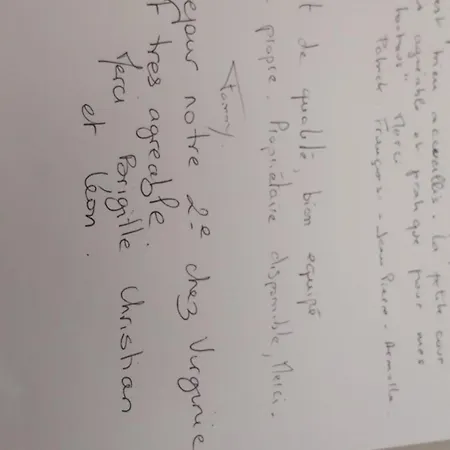 bien accueillis. La petite cour
agréable et pratique pour nos
Merci
Patrick François - Jean Pierre - Armelle.
t de qualité, bien equipé
propre. Propriétaire disponible, Merci.
éjour notre 2e chez Virginie
t très agréable.
Merci Brigitte Christian
et Léon.